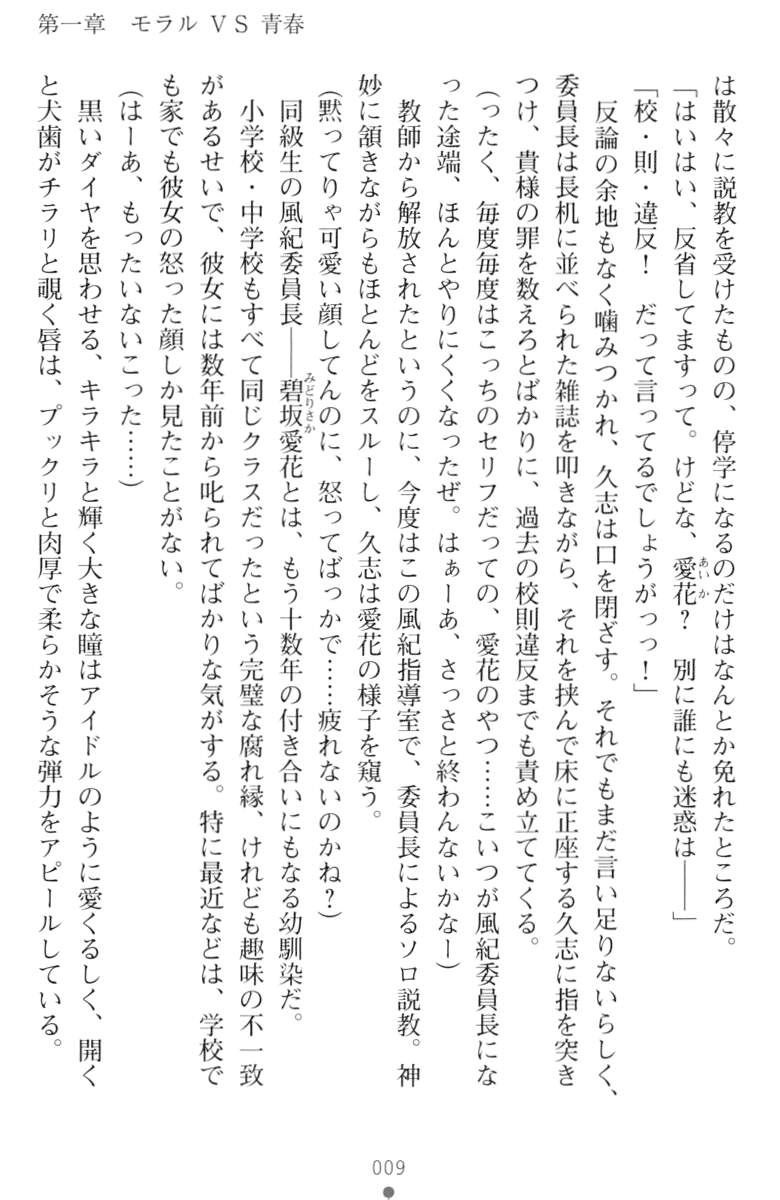 第一章　モラル ＶＳ 青春
は散々に説教を受けたものの、停学になるのだけはなんとか免れたところだ。
「はいはい、反省してますって。けどな、愛花？　別に誰にも迷惑は――」
あいか
「校・則・違反！　だって言ってるでしょうがっっ！」
反論の余地もなく噛みつかれ、久志は口を閉ざす。それでもまだ言い足りないらしく、
委員長は長机に並べられた雑誌を叩きながら、それを挟んで床に正座する久志に指を突き
つけ、貴様の罪を数えろとばかりに、過去の校則違反までも責め立ててくる。
（ったく、毎度毎度はこっちのセリフだっての、愛花のやつ……こいつが風紀委員長にな
った途端、ほんとやりにくくなったぜ。はぁーあ、さっさと終わんないかなー）
教師から解放されたというのに、今度はこの風紀指導室で、委員長によるソロ説教。神
妙に頷きながらもほとんどをスルーし、久志は愛花の様子を窺う。
（黙ってりゃ可愛い顔してんのに、怒ってばっかで……疲れないのかね？）
同級生の風紀委員長――碧坂愛花とは、もう十数年の付き合いにもなる幼馴染だ。
みどりさか
小学校・中学校もすべて同じクラスだったという完璧な腐れ縁、けれども趣味の不一致
があるせいで、彼女には数年前から叱られてばかりな気がする。特に最近などは、学校で
も家でも彼女の怒った顔しか見たことがない。
（はーあ、もったいないこった……）
黒いダイヤを思わせる、キラキラと輝く大きな瞳はアイドルのように愛くるしく、開く
と犬歯がチラリと覗く唇は、プックリと肉厚で柔らかそうな弾力をアピールしている。
009